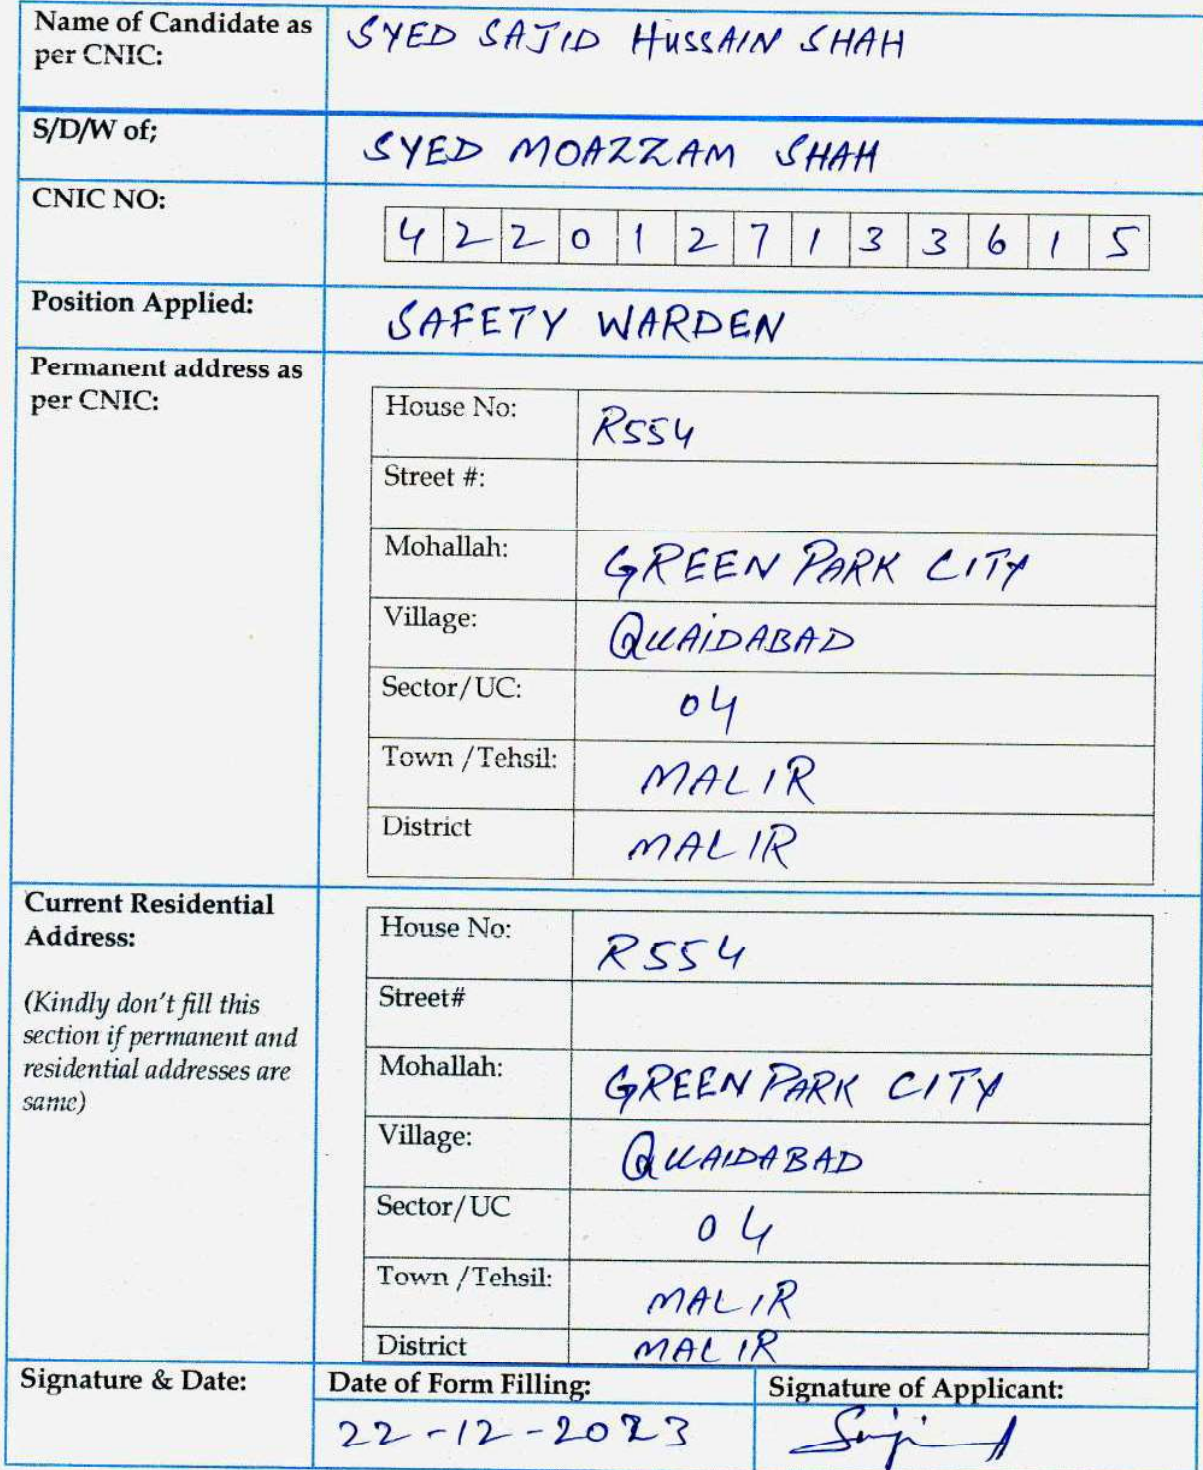 Name of Candidate as per CNIC: SYED SAJID HUSSAIN SHAH
S/D/W of; SYED MOAZZAM SHAH
CNIC NO: 4220127133615
Position Applied: SAFETY WARDEN
Permanent address as per CNIC:
House No: R554
Street #:
Mohallah: GREEN PARK CITY
Village: QUAIDABAD
Sector/UC: 04
Town /Tehsil: MALIR
District MALIR
Current Residential Address:
(Kindly don't fill this section if permanent and residential addresses are same)
House No: R554
Street#
Mohallah: GREEN PARK CITY
Village: QUAIDABAD
Sector/UC 04
Town /Tehsil: MALIR
District MALIR
Signature & Date: Date of Form Filling: Signature of Applicant:
22-12-2023